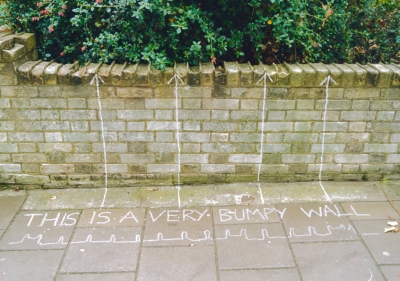 THIS IS A VERY BUMPY WALL